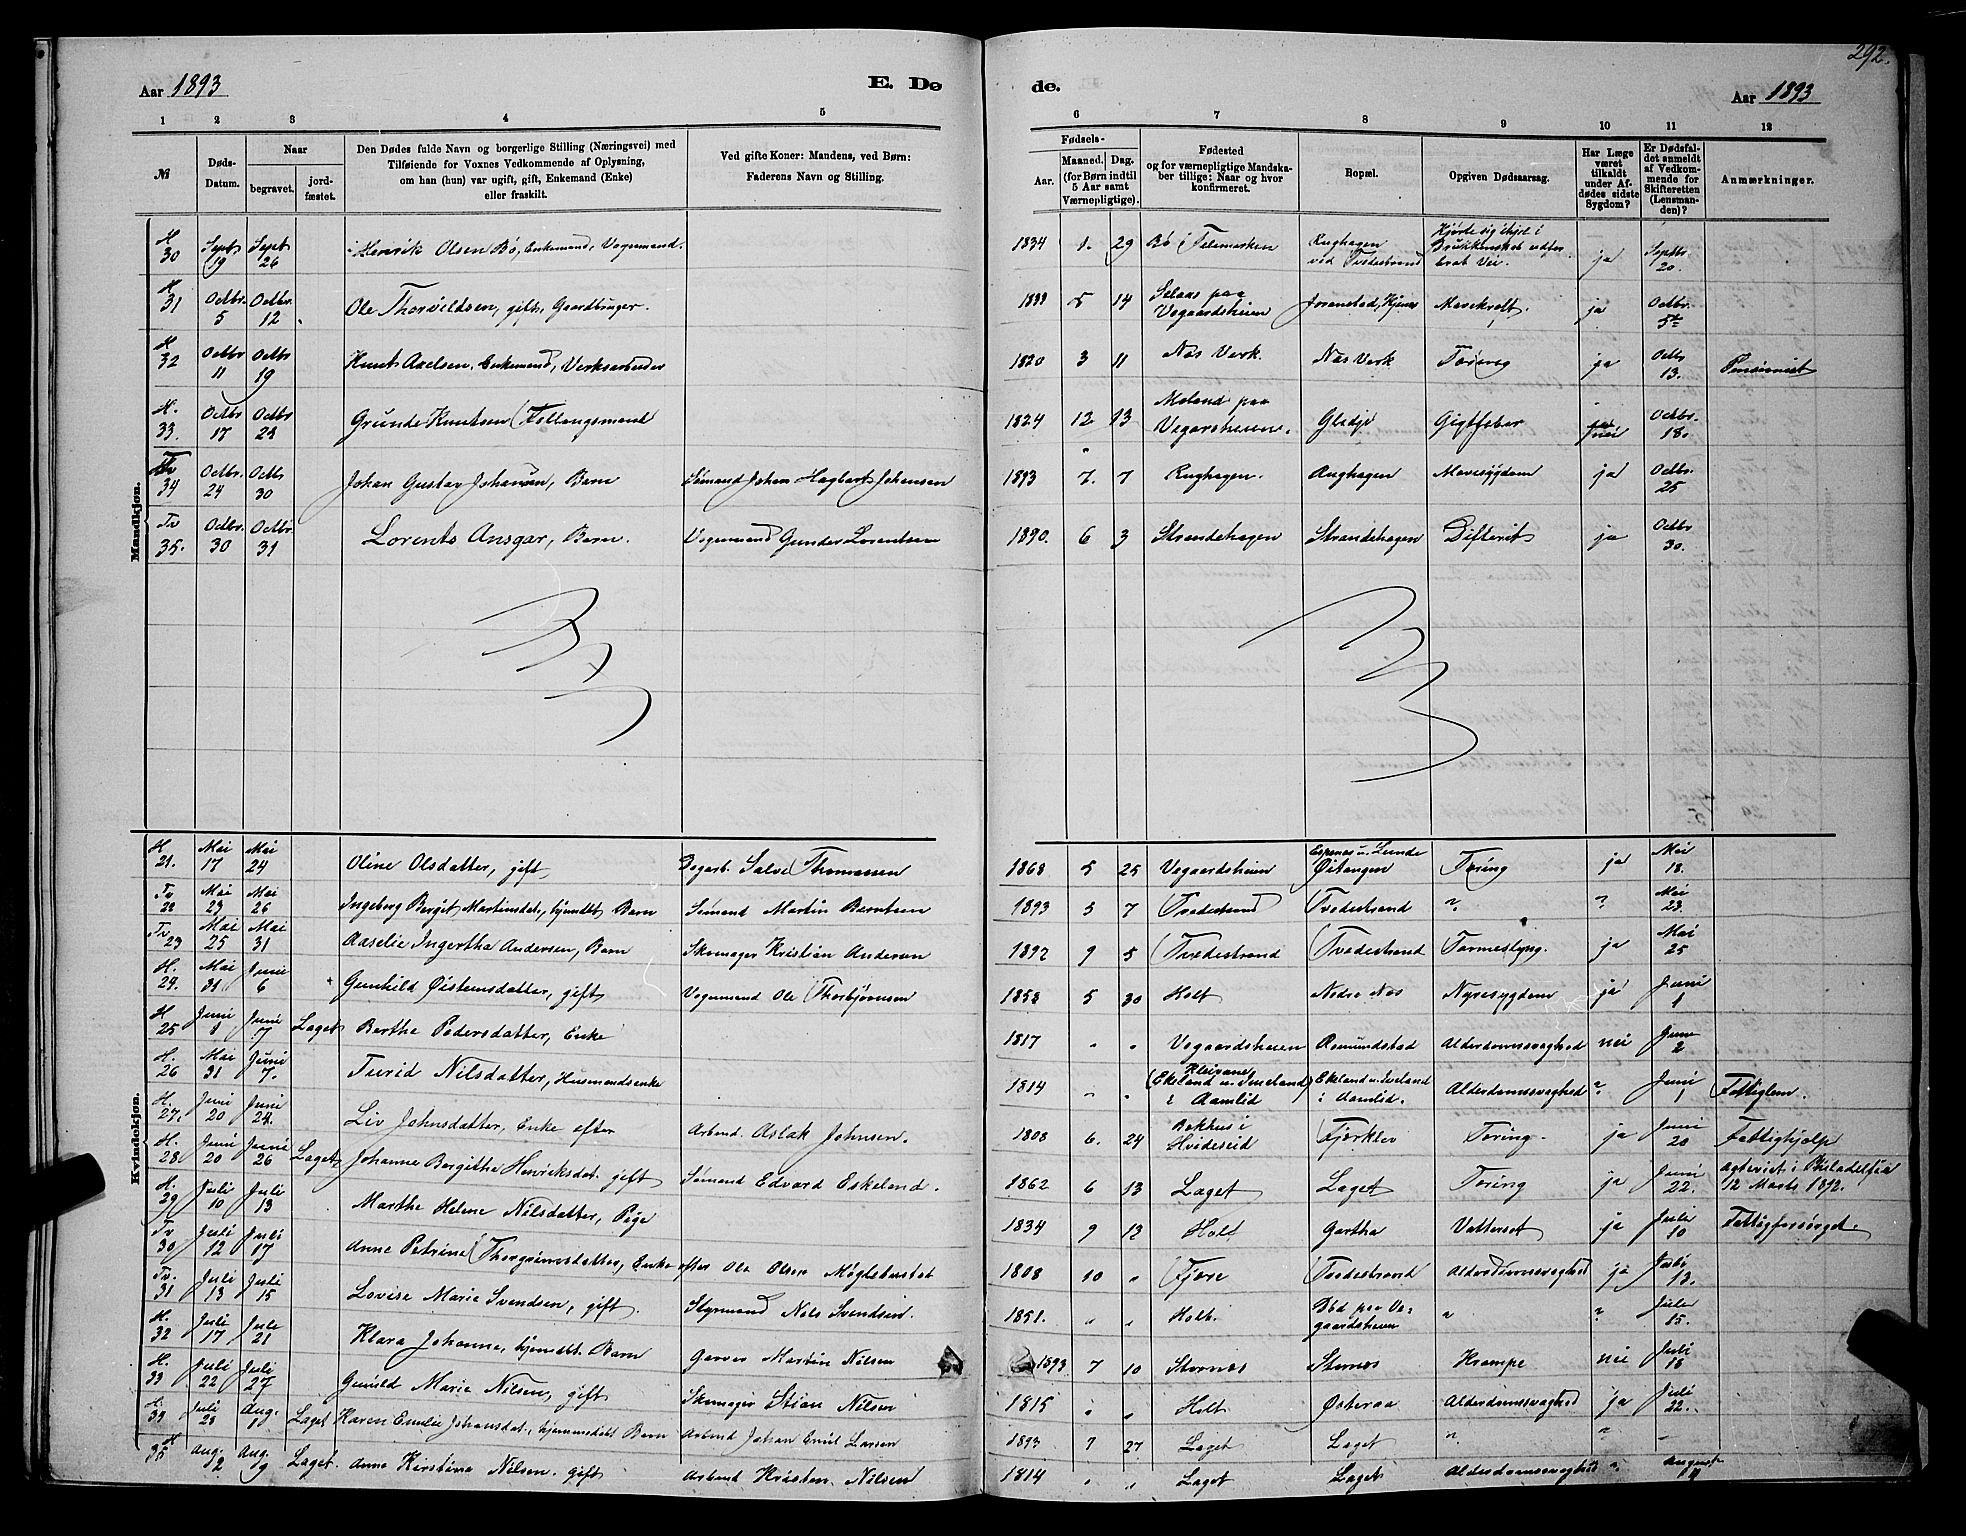 292.
Aar 1893
E. Dø
de.
Aar 1893
1 2 3 4 5
6 7 8 9 10 11 12
№
Døds-Datum.
Naar
begravet.
jord-fæstet.
Den Dødes fulde Navn og borgerlige Stilling (Næringsvei) med
Tilføiende for Voxnes Vedkommende af Oplysning,
om han (hun) var ugift, gift, Enkemand (Enke)
eller fraskilt.
Ved gifte Koner: Mandens, ved Børn:
Faderens Navn og Stilling.
Fødsels-
Aar.
Maaned. Dag.
(for Børn indtil
5 Aar samt
Værnepligtige).
Fødested
og for værnepligtige Mandska-
ber tillige: Naar og hvor
konfirmeret.
Bopæl.
Opgiven Dødsaarsag.
Har Læge
været
tilkaldt
under Af-
dødes sidste
Sygdom?
Er Dødsfal-
det anmeldt
af Vedkom-
mende for
Skifteretten
(Lensman-
den)?
Anmærkninger.
Mandkjøn.
H 30 Septr 19 Sept 26 Henrik Olsen Bø, Enkemand, Vognmand. 1834 1. 29 Bø i Telemarken Rughagen ved Tvedestrand Kjørte sig ihjel i ja Septbr 20.
H 31 Octbr. 5 Octbr. 12 Ole Thorvildsen, gift, Gaardbruger. 5 14 Selaas paa Vegaardsheien Mavekræft. ja Octbr. 5te
H 32 Octbr 11 Octbr 19 Knut Axelsen, Enkemand, Verksarbeider 1820 3 11 Nas Verk. Nas Verk Tæring ja Octb 13. Pensionist
H. 33. Octbr 17 Octbr 23 Grunde Knutsen Follaugsmand 1824 12 13 Moland paa Vegarsheien. Glidje Gigtfeber nei Octbr 18.
Tv 34 Octbr. 24 Octb 30 Johan Gustav Johansen, Barn Sømand Johan Hagbart Johansen 1893 7. 7 Rughagen. Rughagen Mavesygdom ja Octbr. 25
Tv 35. Octbr. 30 Octbr. 31 Lorents Ansgar, Barn. Vognmand Gunder Lorentsen 1890. 6 3 Strandehagen Strandehagen Difterit ja Octbr 30.
Kvindekjøn.
H 21. Mai 17 Mai 24 Oline Olsdatter, gift Salve Thomassen 1868 5 25 Vegaardsheien Espenes u. Lunde Øitangen Tæring ja Mai 18.
Tv 22 Mai 23 Mai 26 Ingeborg Bergit Martinsdat., hjemdbt Barn Sømand Martin Berntsen 1893 3 7 Tvedestrand Tvedestrand " ? Mai 23.
Tv 23 Mai 25 Mai 31 Aaselie Ingertha Andersen, Barn Skomager Kristian Andersen 1892 9 5 Tvedestrand Tvedestrand Tarmeslyng. ja Mai 25
H. 24. Mai 31 Juni 6 Gunhild Øistensdatter, gift Vognmand Ole Thorbjørnsen 1853 5 30 Holt Nedre Nas Nyresygdom ja Juni 1
H 25 Juni 1 Juni 7 Laget Berthe Pedersdatter, Enke 1817 " " Vegaardsheien Romundstad Alderdomssvaghed nei Juni 2
H. 26 Mai 31 Juni 7. Turid Nilsdatter, Husmandsenke 1814 " " Kleivane (Ekeland u. Iveland) i Aamlid Ekeland u. Iveland i Aamlid. Alderdomssvaghed " Juni 1 Fattiglem.
H. 27. Juni 20 Juni 24. Liv Johnsdatter, Enke efter Arbeid. Aslak Johnsen. 1808 6. 24 Bakhus i Hvideseid Fjærklev Tæring. ja Juni 20 Fattighjælp
H. 28. Juni 20 Juni 26 Laget Johanne Bergithe Henriksdat. gift Sømand Edvard Eskeland. 1862 6 13 Laget Laget Tæring ja Juni 22. agteviet i Philadelfia 12 Marts 1892.
H. 29 Juli 10 Juli 13 Marthe Helene Nilsdatter, Pige 1834 9 12 Holt Gartha Vattersot ja Juli 10 Fattigforsørget.
Tv 30 Juli 12 Juli 17 Anne Petrine Thorgrimsdatter, Enke efter Ole Olsen Møglestustøl 1808 10 " Fjære Tvedestrand Alderdomssvaghed ja Juli 13.
Tv. 31 Juli 13 Juli 15 Lovise Marie Svendsen, gift. Styrmand Nils Svendsen. 1851. " " Holt. Død paa Vegaardsheien " ? Juli 15.
H. 32 Juli 17 Juli 21 Klara Johanne, hjemdbt. Barn Garver Martin Nilsen 1893 7 10 Stornæs Stornæs Krampe nei Juli 18
H. 33 Juli 22 Juli 27 Gunild Marie Nilsen, gift Skomager Stian Nilsen 1815 " " Holt Østeraa Alderdomssvaghed ja Juli 22.
Juli 28 Aug. 1 Laget Karen Emelie Johansdat., hjemmedøbt Barn Arbeid Johan Emil Larsen 1893 7 27 Laget Laget " " "
H 35 Aug. 2 Aug. 9 Laget. Anne Kirstine Nilsen. gift Arbeid Kristen Nilsen 1814 " " Laget Laget Alderdomssvaghed " August